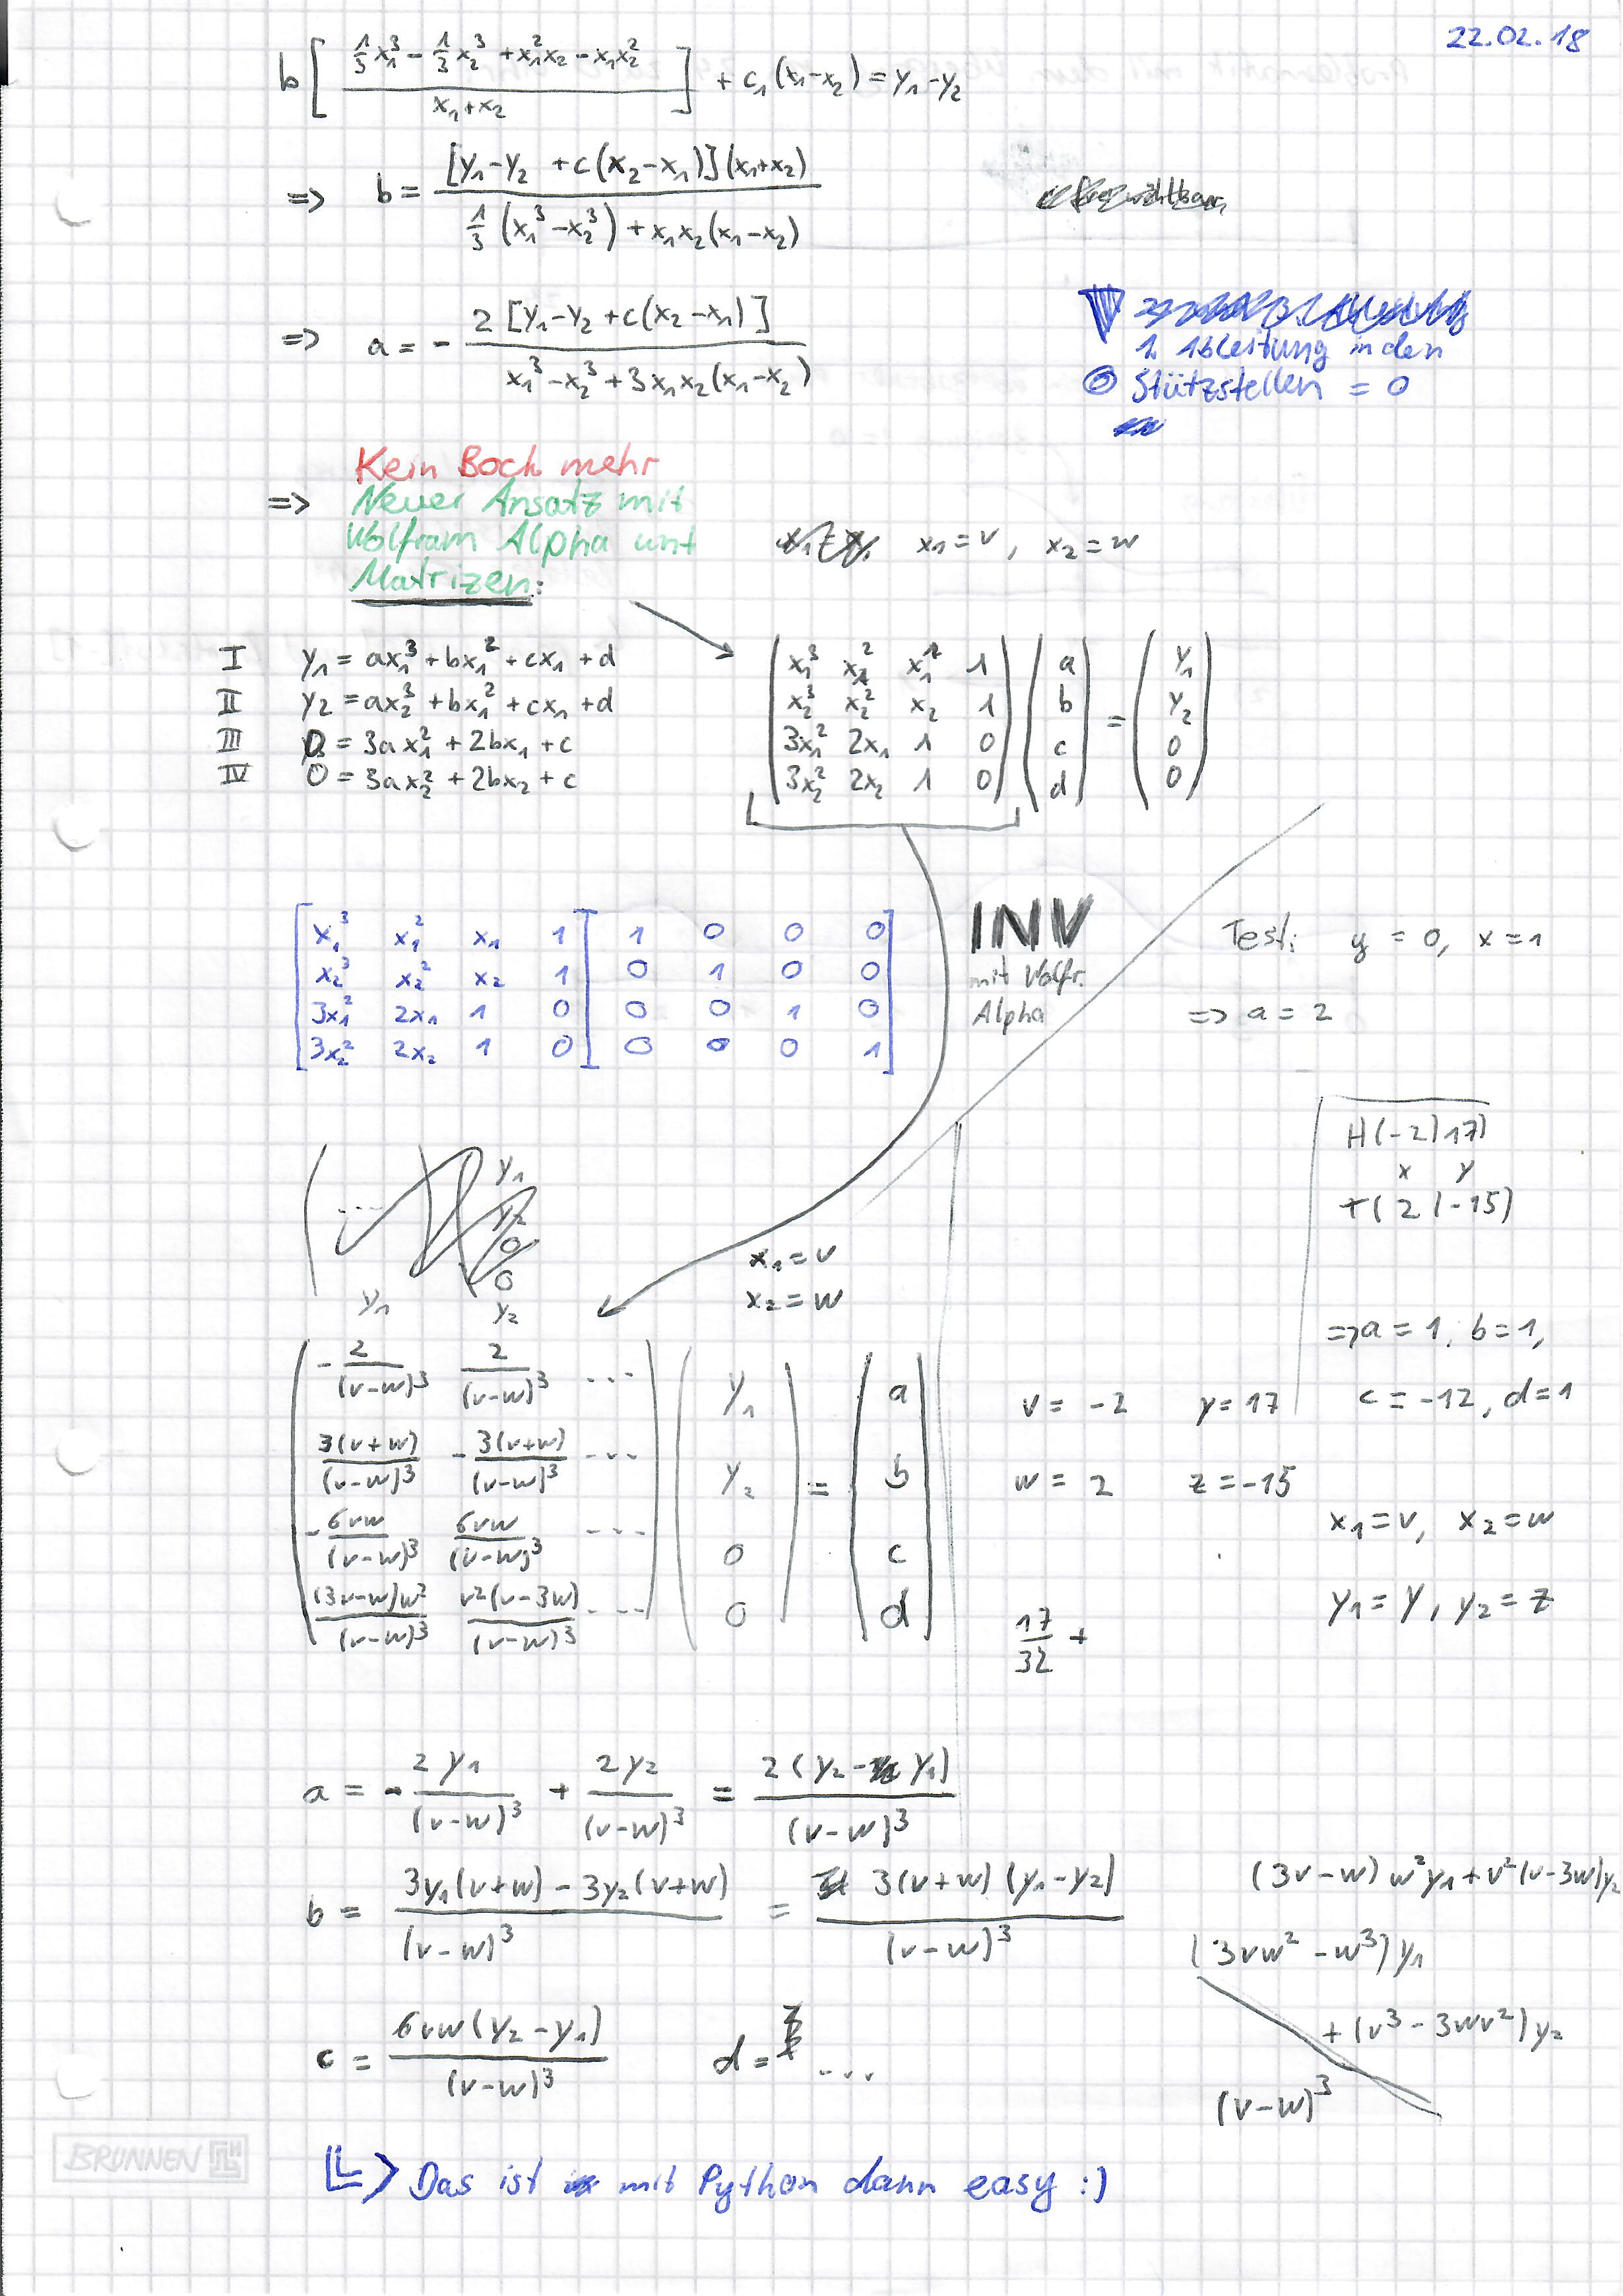 22.02.18
b [ (1/3 x₁³ - 1/3 x₂³ + x₁²x₂ - x₁x₂²) / (x₁+x₂) ] + c₁(x₁-x₂) = y₁-y₂
=> b = [y₁-y₂ + c(x₂-x₁)](x₁+x₂) / (1/3 (x₁³-x₂³) + x₁x₂(x₁-x₂))
=> a = - 2[y₁-y₂ + c(x₂-x₁)] / (x₁³-x₂³+3x₁x₂(x₁-x₂))
1. Ableitung in den
Stützstellen = 0
Kein Bock mehr
=> Neuer Ansatz mit
Wolfram Alpha unt
Matrizen:
x₁ = v, x₂ = w
I y₁ = ax₁³ + bx₁² + cx₁ + d
II y₂ = ax₂³ + bx₁² + cx₁ + d
III 0 = 3ax₁² + 2bx₁ + c
IV 0 = 3ax₂² + 2bx₂ + c
( x₁³ x₁² x₁ 1 ) ( a ) ( y₁ )
( x₂³ x₂² x₂ 1 ) ( b ) = ( y₂ )
( 3x₁² 2x₁ 1 0 ) ( c ) ( 0 )
( 3x₂² 2x₂ 1 0 ) ( d ) ( 0 )
[ x₁³ x₁² x₁ 1 ] 1 0 0 0 ]
[ x₂³ x₂² x₂ 1 ] 0 1 0 0 ]
[ 3x₁² 2x₁ 1 0 ] 0 0 1 0 ]
[ 3x₂² 2x₂ 1 0 ] 0 0 0 1 ]
INV
mit Wolfr.
Alpha
Test: y = 0, x = 1
=> a = 2
H(-2|17)
x y
T(2|-15)
=> a = 1, b = 1,
c = -12, d = 1
( ... ) y₁
y₂
0
0
y₁ y₂
x₁ = v
x₂ = w
( -2/(v-w)³ 2/(v-w)³ ... ) ( y₁ ) ( a )
( 3(v+w)/(v-w)³ -3(v+w)/(v-w)³ ... ) ( y₂ ) = ( b )
( -6vw/(v-w)³ 6vw/(v-w)³ ... ) ( 0 ) ( c )
( (3v-w)w²/(v-w)³ v²(v-3w)/(v-w)³ ... ) ( 0 ) ( d )
v = -2 y = 17
w = 2 z = -15
x₁ = v, x₂ = w
y₁ = y, y₂ = z
17/32 +
a = - 2y₁/(v-w)³ + 2y₂/(v-w)³ = 2(y₂ - y₁)/(v-w)³
b = (3y₁(v+w) - 3y₂(v+w))/(v-w)³ = 3(v+w)(y₁-y₂)/(v-w)³
c = 6vw(y₂-y₁)/(v-w)³ d = ...
(3v-w)w²y₁+v²(v-3w)y₂
(3vw² - w³)y₁
+ (v³ - 3wv²)y₂
(v-w)³
BRUNNEN
↳> Das ist mit Python dann easy :)